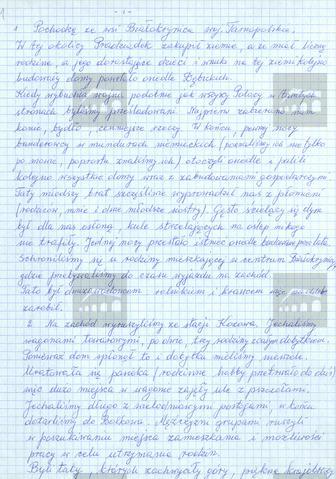 - 1 -
1 Pochodzę ze wsi Białokrynica woj. Tarnopolskie.
W tej okolicy Pradziadek zakupił ziemię, a że miał liczną
rodzinę, a jego dorastające dzieci i wnuki na tej ziemi kolejno
budowały domy, powstało osiedle Dębickich.
Kiedy wybuchła wojna podobnie jak wszyscy Polacy w tamtych
stronach byliśmy prześladowani. Najpierw zabierano nam
konie, bydło, cenniejsze rzeczy. W końcu, pewnej nocy
banderowcy w mundurach niemieckich (poznaliśmy ich nie tylko
po mowie, poprostu znaliśmy ich) otoczyli osiedle i palili
kolejno wszystkie domy wraz z zabudowaniami gospodarczymi.
Taty młodszy brat szczęśliwie wyprowadził nas z płomieni
(rodziców, mnie i dwie młodsze siostry). Gęsto ścielący się dym
był dla nas osłoną, kule strzelających na oślep nikogo
nie trafiły. Jednej nocy przestało istnieć osiedle
Schroniliśmy się u rodziny mieszkającej w centrum
gdzie przebywaliśmy do czasu wyjazdu na zachód.
Tato był rolnikiem i krawcem
zarobił.
2. Na zachód wyruszyliśmy ze stacji Jechaliśmy
wagonami towarowymi, po dwie, trzy rodziny z całym dobytkiem.
Ponieważ dom spłonął to i dobytku mieliśmy niewiele.
Uratowała się panoka (rodzinne hobby przetrwało do dziś)
więc dużo miejsca w wagonie zajęły ule z pszczołami.
Jechaliśmy długo z wielodniowymi postojami, w końcu
dotarliśmy do Bolkowa. Mężczyźni grupami ruszyli
w poszukiwaniu miejsca zamieszkania i możliwości
pracy w celu utrzymania rodzin.
Byli tacy, których zachwyciły góry, piękne krajobrazy